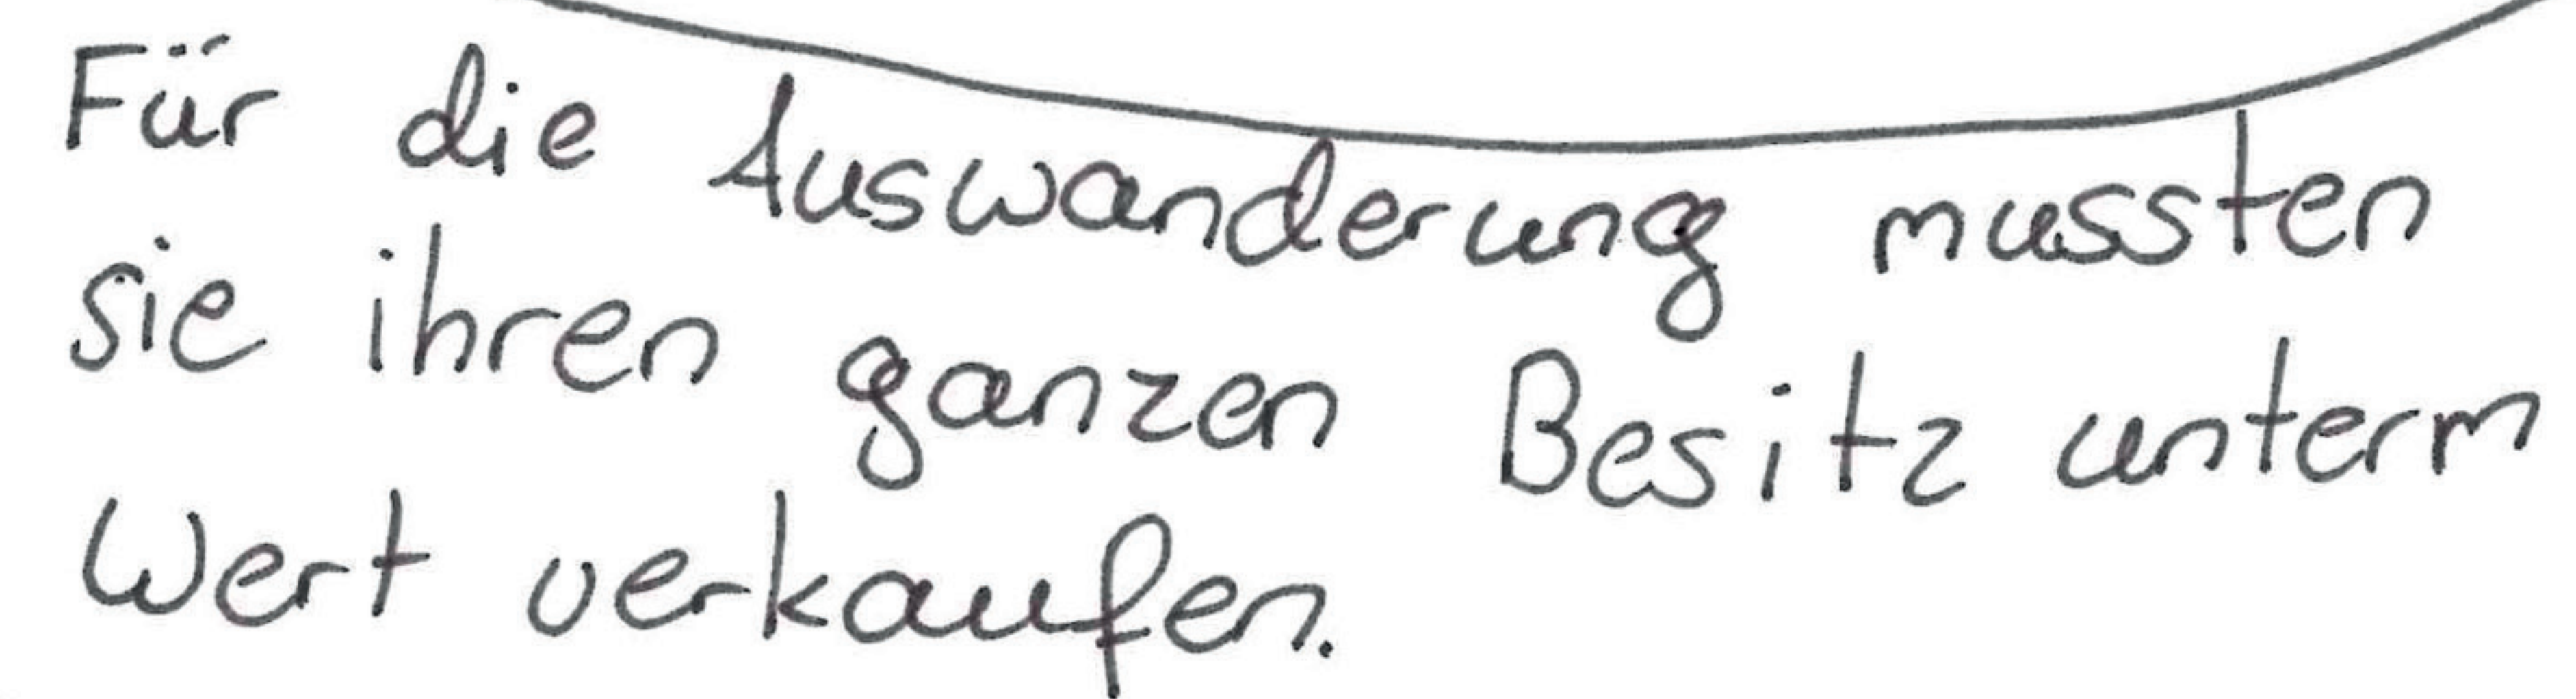 Für die Auswanderung mussten
sie ihren ganzen Besitz unterm
Wert verkaufen.